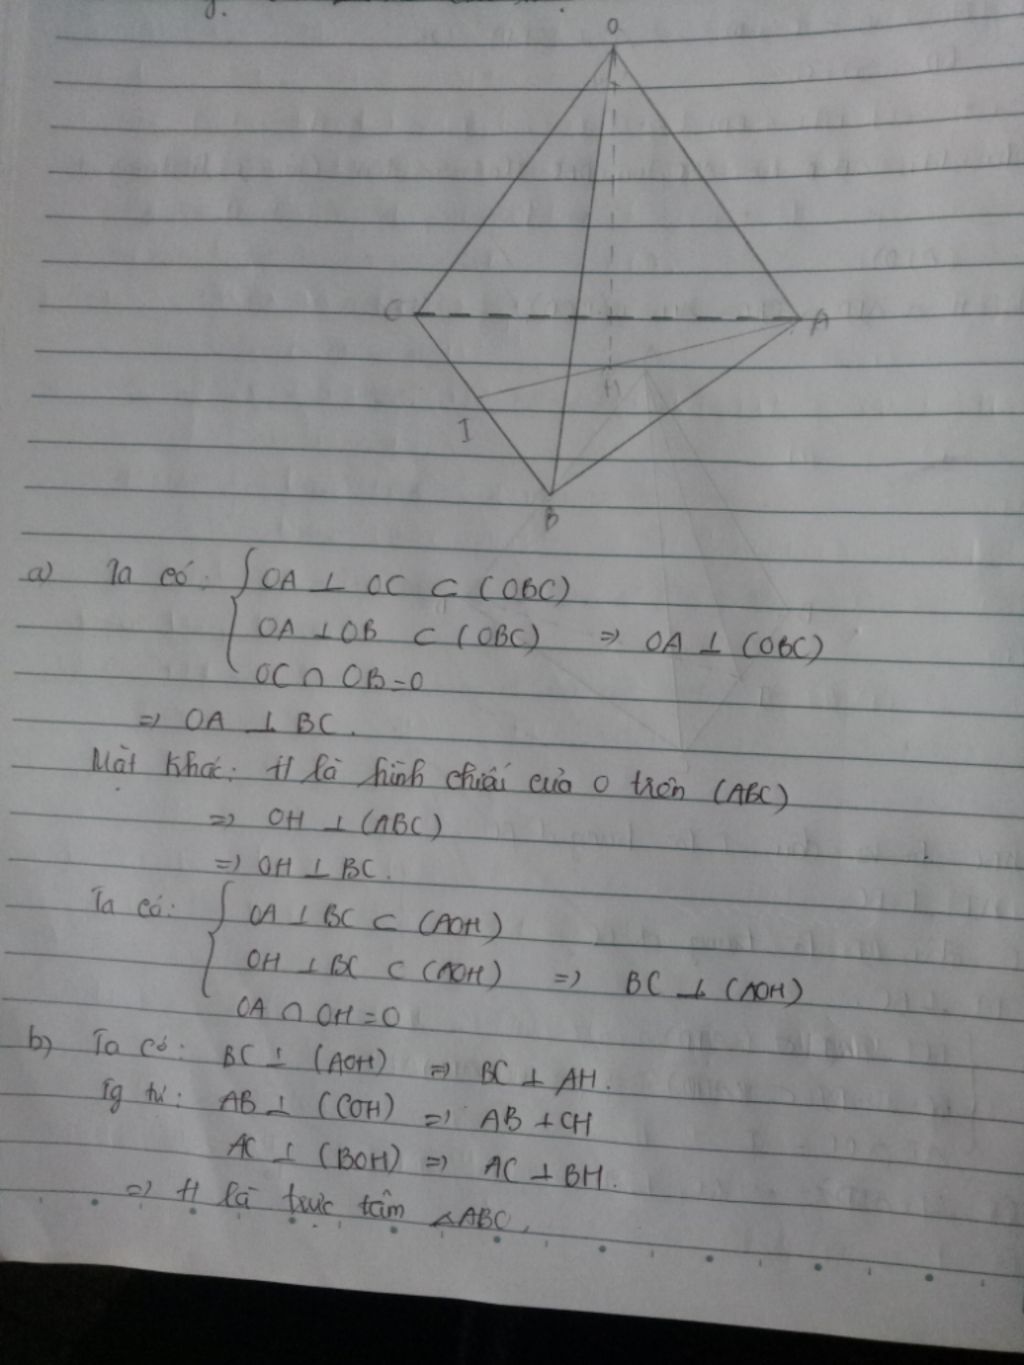 O
C
A
H
I
B
a) Ta có: OA ⊥ OC ⊂ (OBC)
OA ⊥ OB ⊂ (OBC) ⇒ OA ⊥ (OBC)
OC ∩ OB = O
⇒ OA ⊥ BC.
Mặt khác: H là hình chiếu của O trên (ABC)
⇒ OH ⊥ (ABC)
⇒ OH ⊥ BC.
Ta có: OA ⊥ BC ⊂ (AOH)
OH ⊥ BC ⊂ (AOH) ⇒ BC ⊥ (AOH)
OA ∩ OH = O
b) Ta có: BC ⊥ (AOH) ⇒ BC ⊥ AH.
Tg tự: AB ⊥ (COH) ⇒ AB ⊥ CH
AC ⊥ (BOH) ⇒ AC ⊥ BH.
⇒ H là trực tâm △ABC.